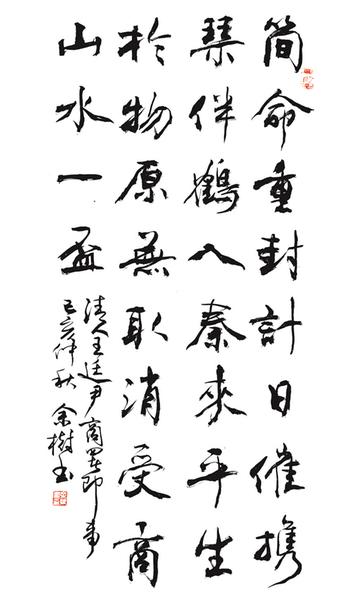 簡命重封計日催携
琴伴鶴入秦來平生
於物原無取消受商
山水一盃
清人王廷尹商署即事
己亥仲秋 余樹书